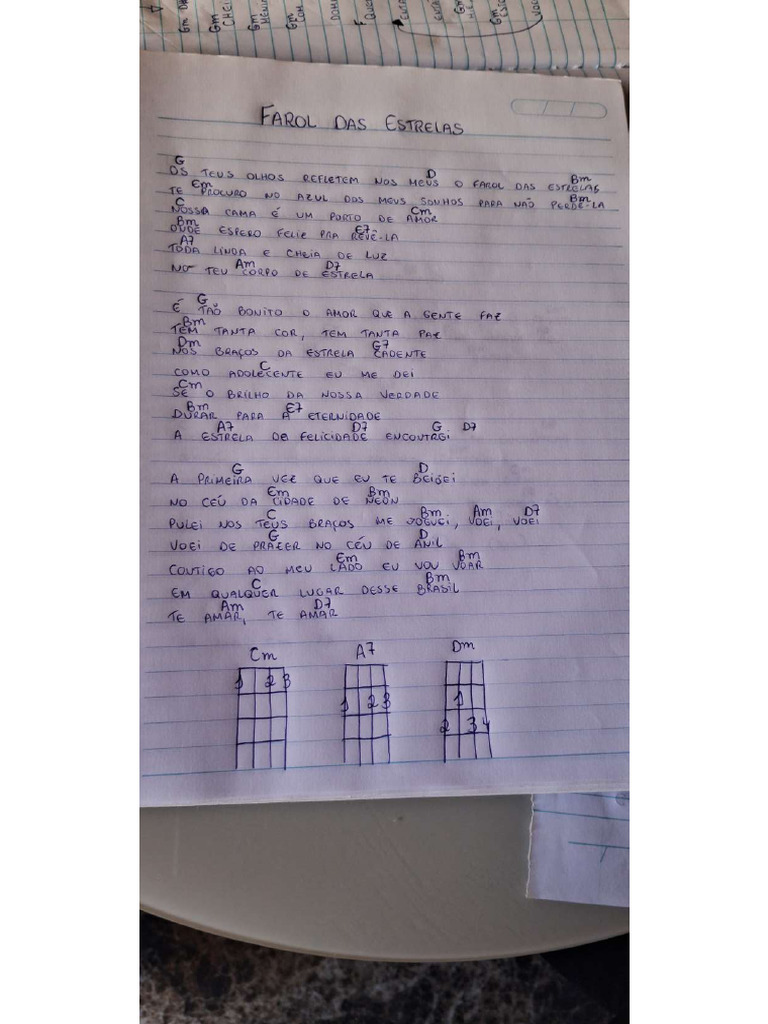 Gm
Gm
CHEI
Gm
Gm
COM
F
Gm
Gm
FAROL DAS ESTRELAS
/ /
G D Bm
OS TEUS OLHOS REFLETEM NOS MEUS O FAROL DAS ESTRELAS
Em Bm
TE PROCURO NO AZUL DOS MEUS SONHOS PARA NÃO PERDÊ-LA
C Cm
NOSSA CAMA É UM PORTO DE AMOR
Bm E7
ONDE ESPERO FELIZ PRA REVÊ-LA
A7
TODA LINDA E CHEIA DE LUZ
Am D7
NO TEU CORPO DE ESTRELA
G
É TÃO BONITO O AMOR QUE A GENTE FAZ
Bm
TEM TANTA COR, TEM TANTA PAZ
Dm G7
NOS BRAÇOS DA ESTRELA CADENTE
C
COMO ADOLECENTE EU ME DEI
Cm
SE O BRILHO DA NOSSA VERDADE
Bm E7
DURAR PARA A ETERNIDADE
A7 D7 G D7
A ESTRELA DE FELICIDADE ENCONTREI
G D
A PRIMEIRA VEZ QUE EU TE BEIJEI
Em Bm
NO CÉU DA CIDADE DE NEON
C Bm Am D7
PULEI NOS TEUS BRAÇOS ME JOGUEI, VOEI, VOEI
G D
VOEI DE PRAZER NO CÉU DE ANIL
Em Bm
CONTIGO AO MEU LADO EU VOU VOAR
C Bm
EM QUALQUER LUGAR DESSE BRASIL
Am D7
TE AMAR, TE AMAR
Cm A7 Dm
1 2 3
1 2 3
1
2 3 4